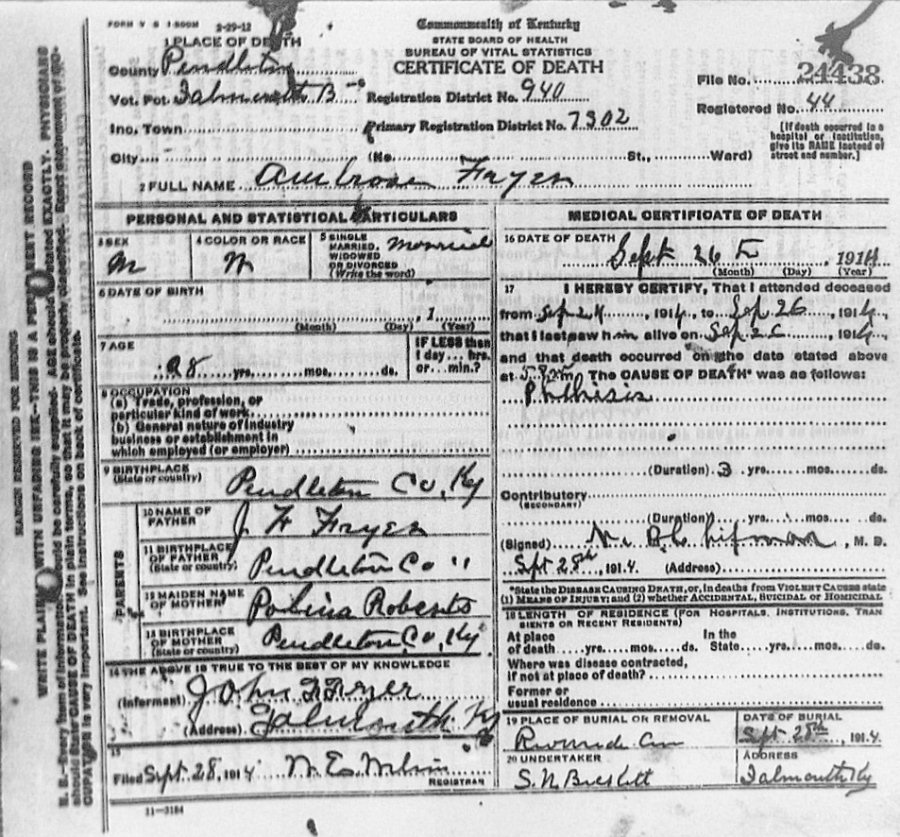 FORM V S 1-500M 2-29-12
Commonwealth of Kentucky
STATE BOARD OF HEALTH
BUREAU OF VITAL STATISTICS
CERTIFICATE OF DEATH
1 PLACE OF DEATH
County Pendleton
Vot. Pct. Falmouth B
Inc. Town
City (No. St., Ward)
Registration District No. 940
Primary Registration District No. 7302
File No. 24438
Registered No. 44
[If death occurred in a
hospital or institution,
give its NAME instead of
street and number.]
2 FULL NAME Ambrose Fryer
PERSONAL AND STATISTICAL PARTICULARS
3 SEX
M
4 COLOR OR RACE
W
5 SINGLE
MARRIED,
WIDOWED
OR DIVORCED
(Write the word)
Married
6 DATE OF BIRTH
, 1
(Month) (Day) (Year)
7 AGE
28 yrs. mos. ds.
IF LESS then
1 day... hrs.
or... min.?
8 OCCUPATION
(a) Trade, profession, or
particular kind of work
(b) General nature of industry
business or establishment in
which employed (or employer)
9 BIRTHPLACE
(State or country)
Pendleton Co, Ky
PARENTS
10 NAME OF
FATHER
J F Fryer
11 BIRTHPLACE
OF FATHER
(State or country)
Pendleton Co "
12 MAIDEN NAME
OF MOTHER
Roberts
13 BIRTHPLACE
OF MOTHER
(State or country)
Pendleton Co, Ky
14 THE ABOVE IS TRUE TO THE BEST OF MY KNOWLEDGE
(Informant) John F Fryer
(Address) Falmouth Ky
15
Filed Sept 28, 1914
REGISTRAR
11-3184
MEDICAL CERTIFICATE OF DEATH
16 DATE OF DEATH
Sept 26, 1914
(Month) (Day) (Year)
17 I HEREBY CERTIFY, That I attended deceased
from Sep, 1914, to Sep 26, 1914,
that I last saw him alive on Sep 26, 1914,
and that death occurred on the date stated above
at 5 m The CAUSE OF DEATH* was as follows:
Phthisis
(Duration) 3 yrs. mos. ds.
Contributory
(SECONDARY)
(Duration) yrs. mos. ds.
(Signed) , M. D.
Sept 28th, 1914. (Address)
*State the DISEASE CAUSING DEATH, or, in deaths from VIOLENT CAUSES state
(1) MEANS OF INJURY; and (2) whether ACCIDENTAL, SUICIDAL or HOMICIDAL
18 LENGTH OF RESIDENCE (FOR HOSPITALS, INSTITUTIONS, TRAN
SIENTS OR RECENT RESIDENTS)
At place
of death yrs. mos. ds.
In the
State yrs. mos. ds.
Where was disease contracted,
if not at place of death?
Former or
usual residence
19 PLACE OF BURIAL OR REMOVAL
DATE OF BURIAL
Sept 28th, 1914.
20 UNDERTAKER
S.N. Buckett
ADDRESS
Falmouth Ky
MARGIN RESERVED FOR BINDING